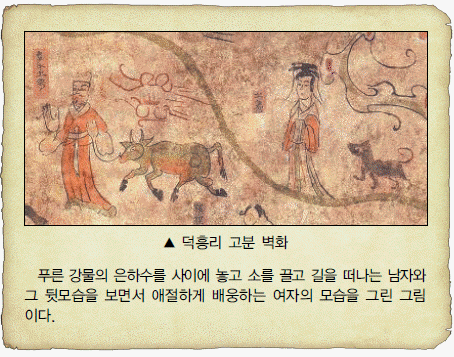 ▲ 덕흥리 고분 벽화
푸른 강물의 은하수를 사이에 놓고 소를 끌고 길을 떠나는 남자와
그 뒷모습을 보면서 애절하게 배웅하는 여자의 모습을 그린 그림
이다.